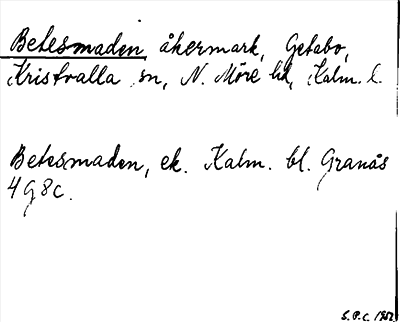 Betesmaden, åkermark, Getabo,
Kristvalla sn, N. Möre hd, Kalm. l.
Betesmaden, ek. Kalm. bl. Granås
4 G 8 c.
S.P.C. 1952